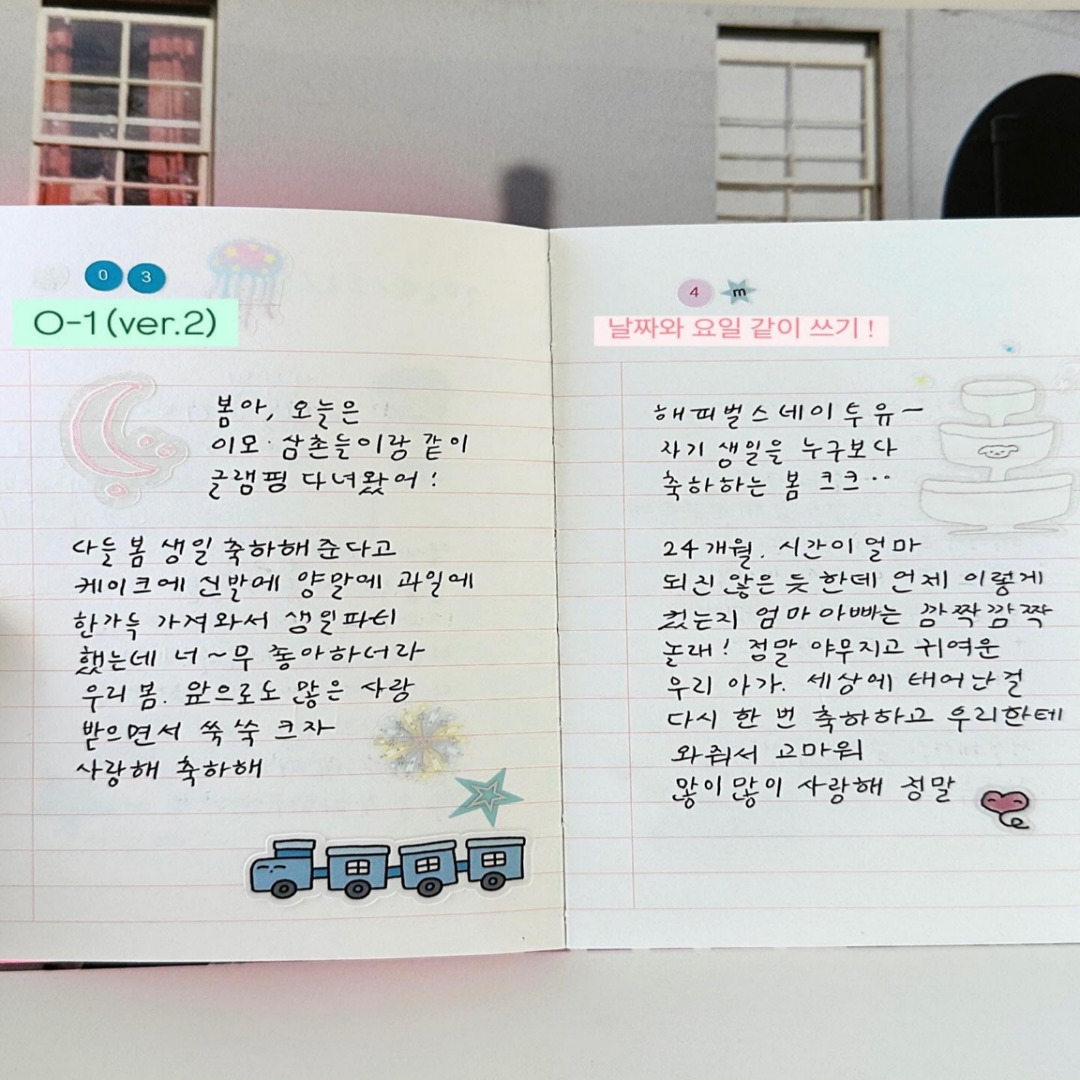 0 3
O-1(ver.2)
봄아, 오늘은
이모·삼촌들이랑 같이
글램핑 다녀왔어!
다들 봄 생일 축하해 준다고
케이크에 신발에 양말에 과일에
한가득 가져와서 생일파티
했는데 너~무 좋아하더라
우리 봄. 앞으로도 많은 사랑
받으면서 쑥쑥 크자
사랑해 축하해
4 m
날짜와 요일 같이 쓰기!
해피벌스데이투유~
자기 생일을 누구보다
축하하는 봄 크크··
24개월. 시간이 얼마
되진 않은 듯 한데 언제 이렇게
컸는지 엄마 아빠는 깜짝깜짝
놀래! 정말 야무지고 귀여운
우리 아가. 세상에 태어난걸
다시 한 번 축하하고 우리한테
와줘서 고마워
많이 많이 사랑해 정말